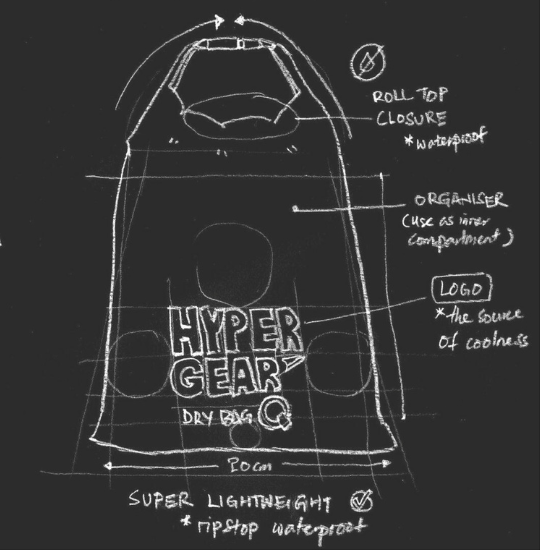 ROLL TOP
CLOSURE
*waterproof
ORGANISER
(use as inner
compartment)
LOGO
*the source
of coolness
HYPER
GEAR
DRY BAG Q
20cm
SUPER LIGHTWEIGHT
*ripstop waterproof